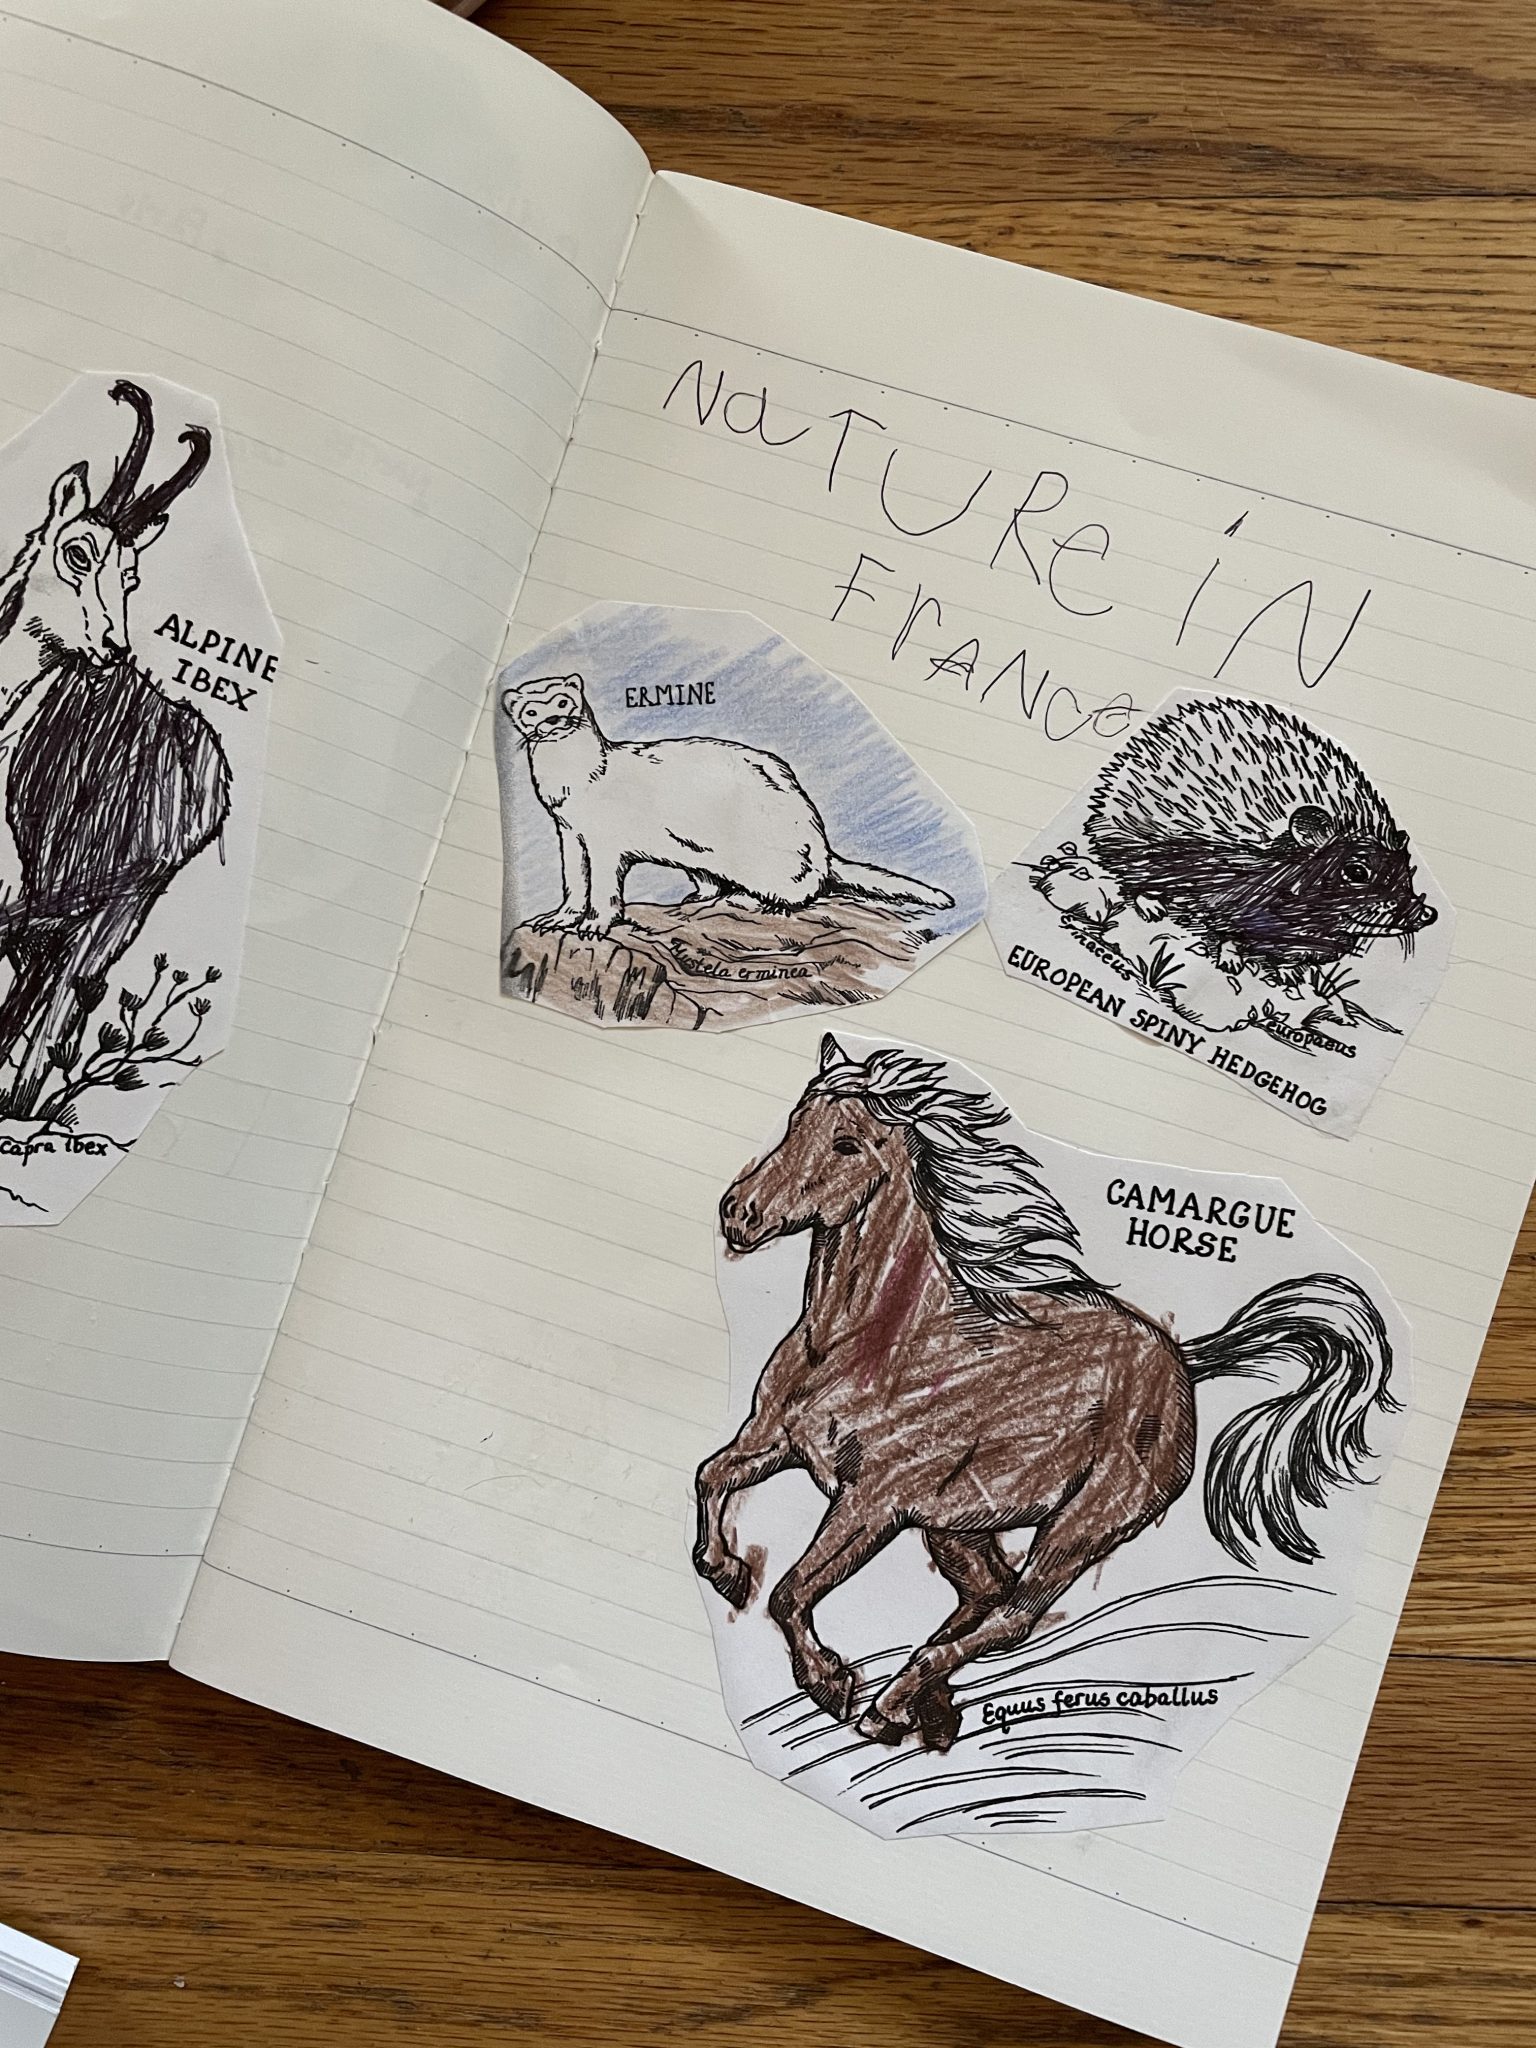 ALPINE
IBEX
capra ibex
NaTURE iN
FrANCe
ERMINE
Mustela erminea
Erinaceus
europaeus
EUROPEAN SPINY HEDGEHOG
CAMARGUE
HORSE
Equus ferus caballus